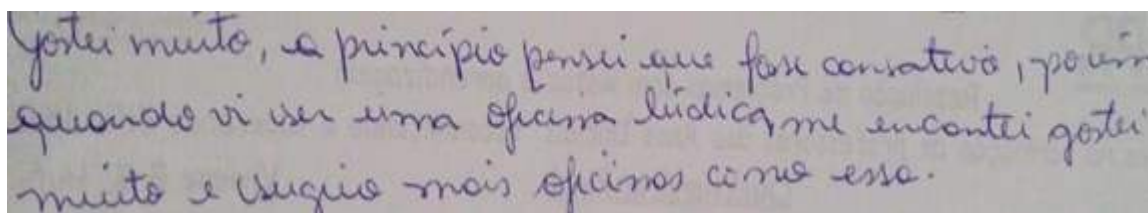 Gostei muito, a princípio pensei que fosse cansativo, porém
quando vi ser uma oficina lúdica, me encantei gostei
muito e sugiro mais oficinas como essa.